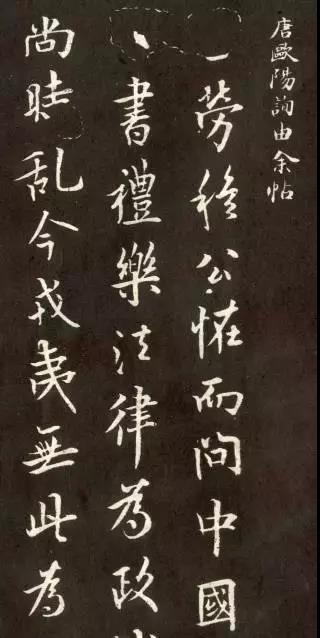 唐歐陽詢由余帖
勞穆公恠而問中國
書禮樂法律為政
尚時乱今戎夷無此為